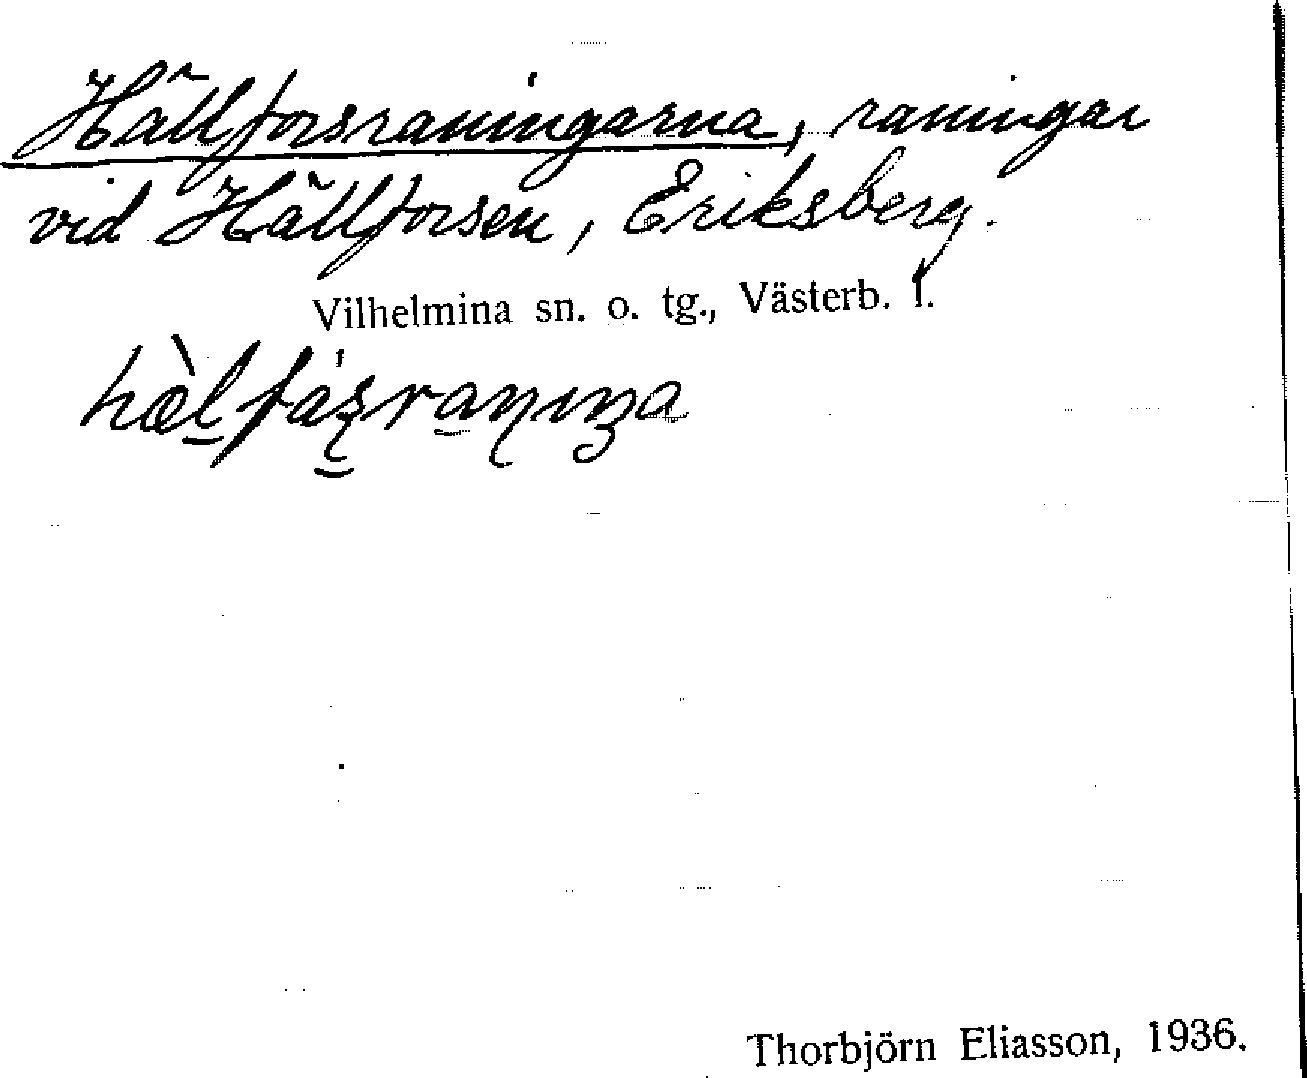 Hällforsraningarna, raningar
vid Hällforsen, Eriksberg.
Vilhelmina sn. o. tg., Västerb. l.
Thorbjörn Eliasson, 1936.